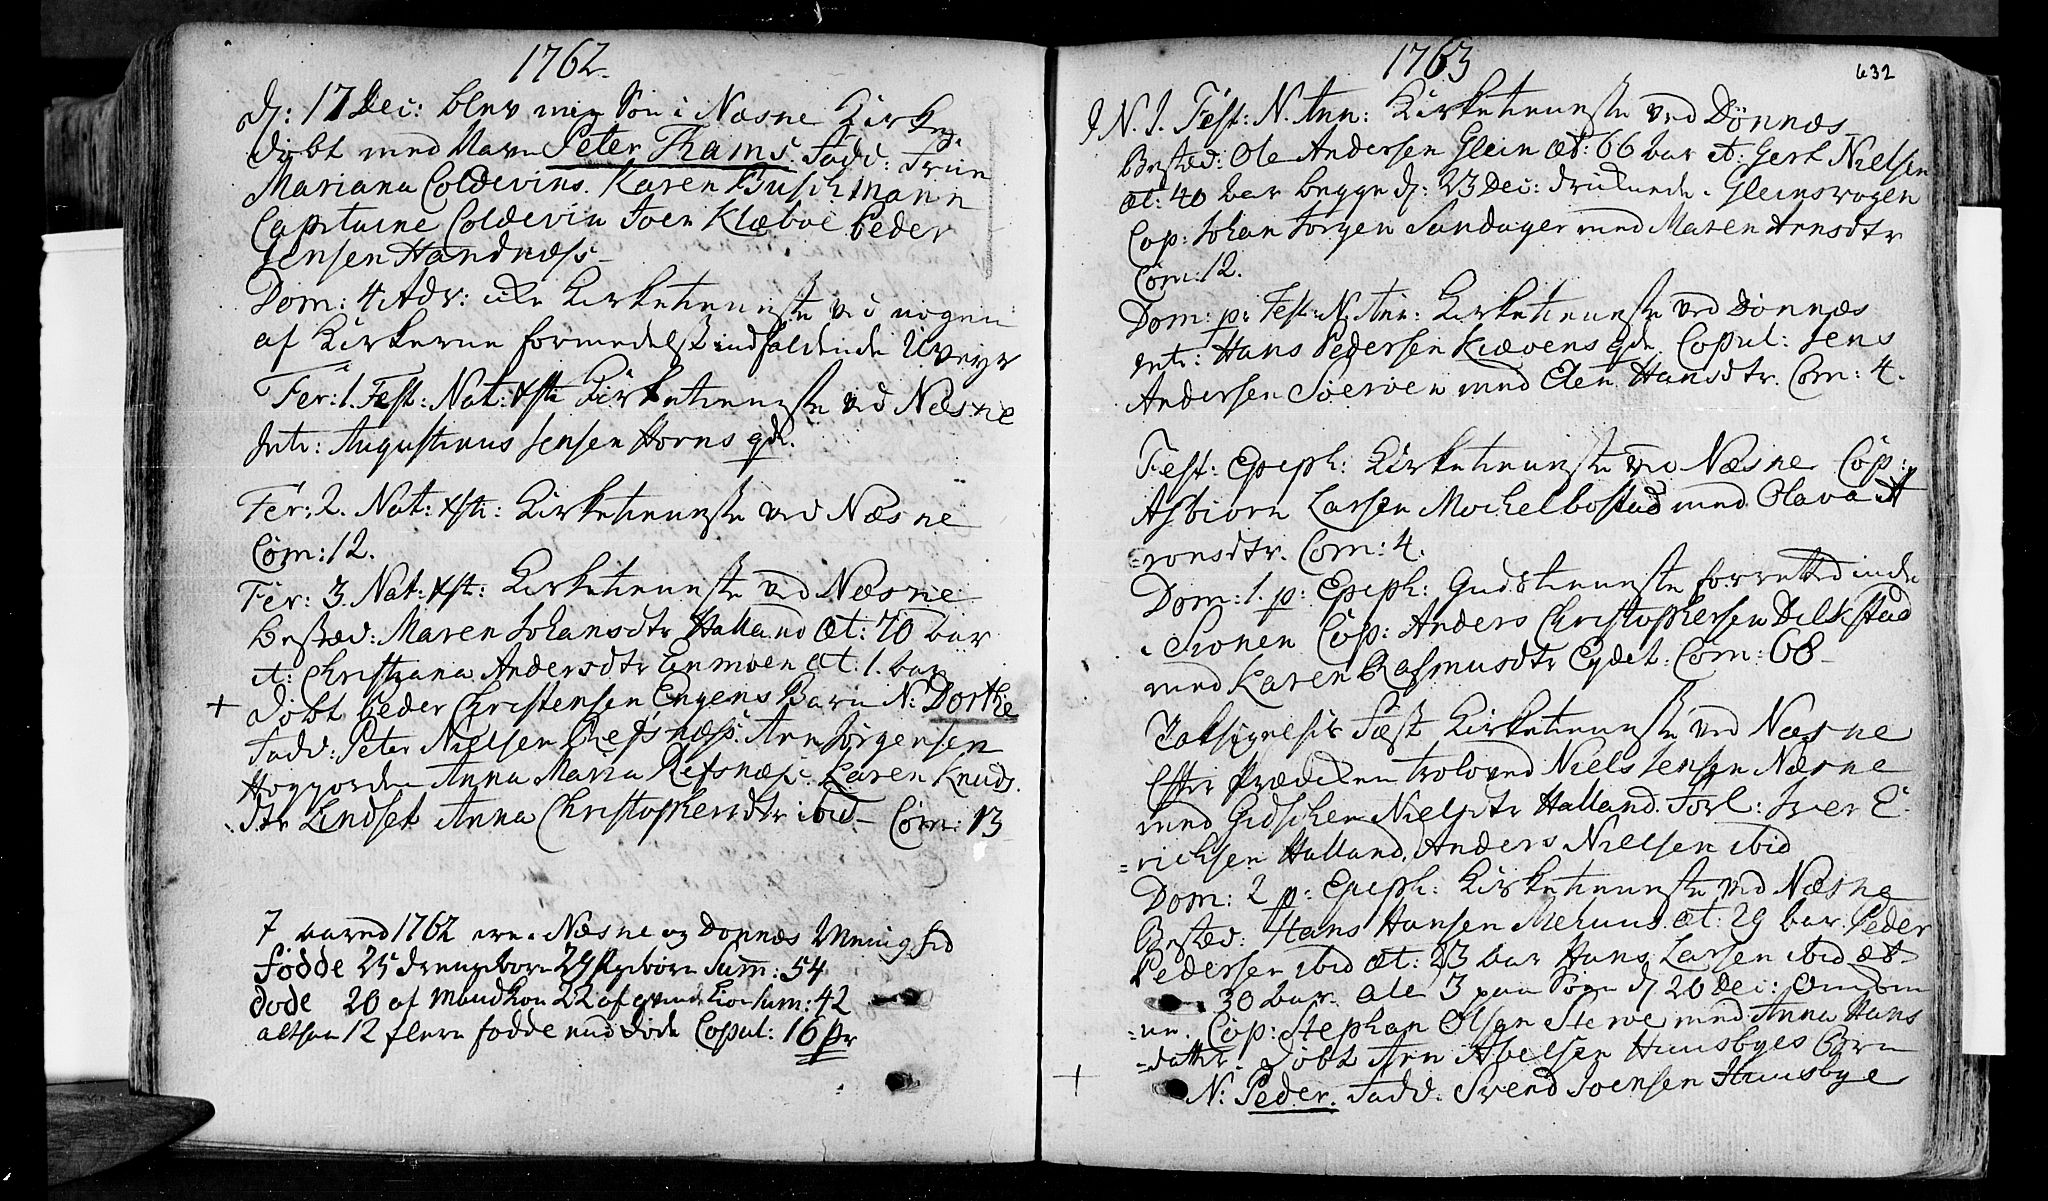 1762
d: 17 Dec: blev min Søn i Næsne Kirke
døbt med Navn Peter Thams. Fadd: Frue
Mariana Coldevins. Karen Buschmann
Capitaine Coldevin Joen Klæboe Peder
Jensen Handnæss
Dom: 4 Adv: ikke Kirketienneste ved nogen
af Kirkerne formedelst indfaldende Uveyr
Fer: 1. Fest: Nat: Xsti Kirketienneste ved Næsne
Intr: Augustinus Jensen Horns qde.
Fer: 2. Nat: Xsti: Kirketienneste ved Næsne
Com: 12.
Fer: 3. Nat: Xsti: Kirketienneste ved Næsne
Begrav: Maren Johansdtr Halland æt: 70 bar
it: Christiana Andersdtr Enmoen æt: 1. bar
+ døbt Peder Christensen Engens Barn N: Dorthe
Fadd: Peter Nielsen Refsnæss. Ann Jørgensen
Anna Maria Refsnæss Karen Knuds
dtr Lindset Anna Christophersdtr ibid Com: 13
I aaret 1762 ere i Næsne og Dønnæs Menighed
fødde 25 drengebørn 29 Pigebørn Sum: 54
døde 20 af Mandkøn 22 af qvindekiøn sum: 42
altsaa 12 flere fødde end døde Copul: 16 Par
1763
632
I N. J. Fest: N. Ann: Kirketienneste ved Dønnæs
Begrav: Ole Andersen Glein æt: 66 bar it: Gert Nielsen
æt: 40 bar begge d: 23 Dec: druknede i Gleinsvogen
Cop: Johan Jørgen Sandager med Maren Arnsdtr
Com: 12.
Dom: p: Fest: N. Ann: Kirketienneste ved Dønnæs
intr: Hans Pedersen Kiævens qde Copul: Jens
Andersen Sierven med Elen Hansdtr. Com: 4.
Fest: Epiph: Kirketienneste ved Næsne Cop:
Asbiørn Larsen Mochelbostad med Olava A
=ronsdtr. Com: 4.
Dom: 1. p: Epiph: Gudstienneste forretted inde
i Sionen Cop: Anders Christophersen Dilkstad
med Karen Rasmusdtr Eydet. Com: 68
Taksigelsis Fæst Kirketienneste ved Næsne
Efter Prædiken troloved Niels Jensen Næsne
med Gidschen Nielsdtr Halland. Forl: Iver E
=richsen Halland. Anders Nielsen ibid
Dom: 2 p: Epiph: Kirketienneste ved Næsne
Begrav: Hans Hansen æt: 29 bar. Peder
Pedersen ibid æt: 23 bar Hans Larsen ibid æt
30 bar. alle 3 paa Søen d 20 Dec: omkom
=ne. Cop: Stephan Olsen med Anna Hans
=datter. døbt Arn Abelsen Huusbyes Barn
+ N: Peder. Fadd: Svend Joensen Huusbye